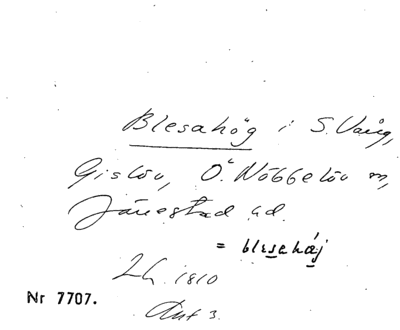 Blesahög i S. Vång,
Gislöv, Ö. Nöbbelöv m,
Järrestad hd.
= blesahàj
Lh. 1810
Nr 7707.